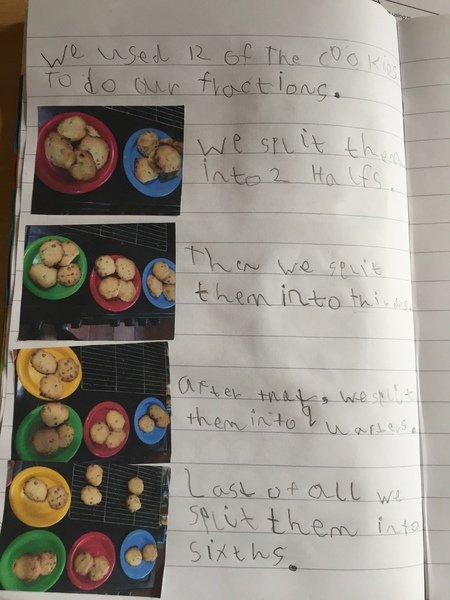 We used 12 of The cookies
To do our fractions.
We split them
into 2 Halfs.
Then we split
them into thirds.
After that, we split
them into quarters.
Last of all we
split them into
sixths.